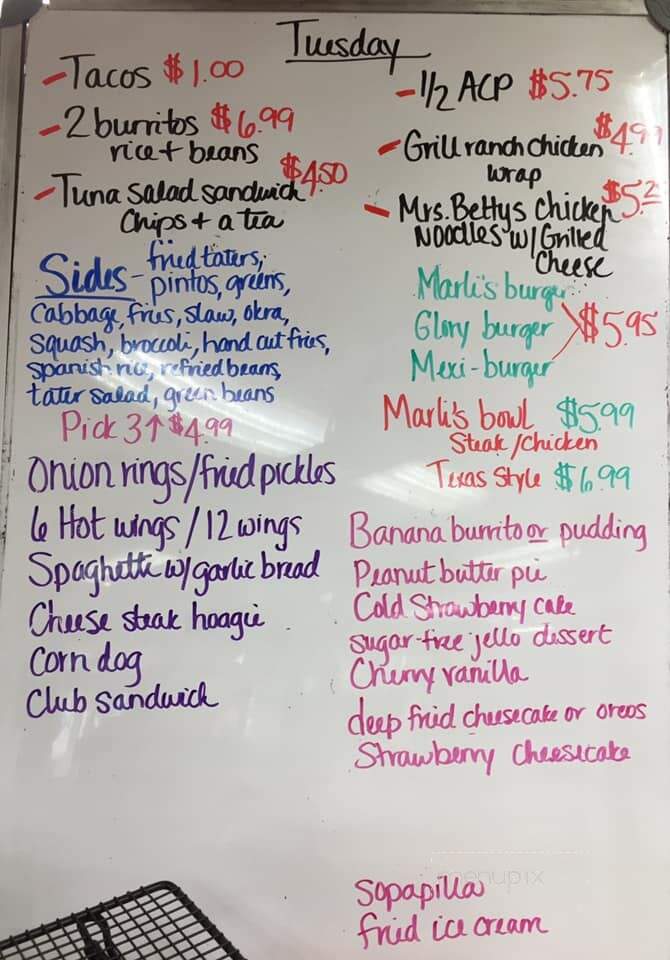 Tuesday
- Tacos $1.00
- 2 burritos $6.99
rice + beans
- Tuna salad sandwich $4.50
Chips + a tea
Sides - fried taters,
pintos, greens,
Cabbage, fries, slaw, okra,
squash, broccoli, hand cut fries,
spanish rice, refried beans,
tater salad, green beans
Pick 3 ↑ $4.99
Onion rings/fried pickles
6 Hot wings / 12 wings
Spaghetti w/garlic bread
Cheese steak hoagie
Corn dog
Club sandwich
- 1/2 ACP $5.75
- Grill ranch chicken $4.99
wrap
- Mrs. Bettys Chicken
Noodles w/Grilled
Cheese
Marli's burger
Glory burger $5.95
Mexi-burger
Marli's bowl $5.99
Steak/Chicken
Texas Style $6.99
Banana burrito or pudding
Peanut butter pie
Cold Strawberry cake
sugar-free jello dissert
Cherry vanilla
deep fried cheesecake or oreos
Strawberry cheesecake
menupix
Sopapilla
fried ice cream